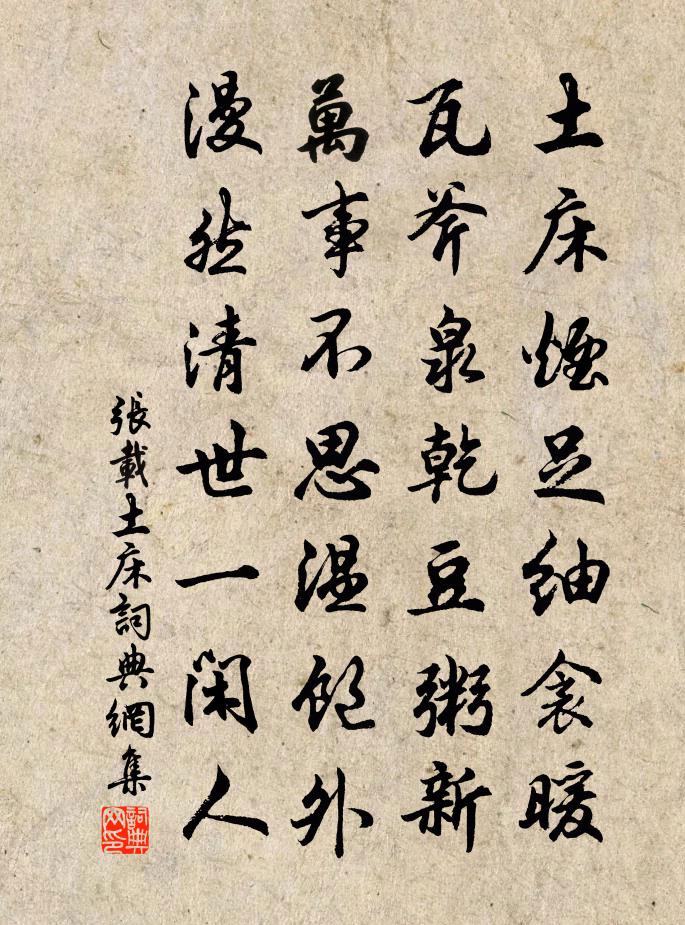 土床煙足紬衾暖
瓦斧泉乾豆粥新
萬事不思温飽外
漫然清世一閑人
張載土床詞典網集
詞典网印